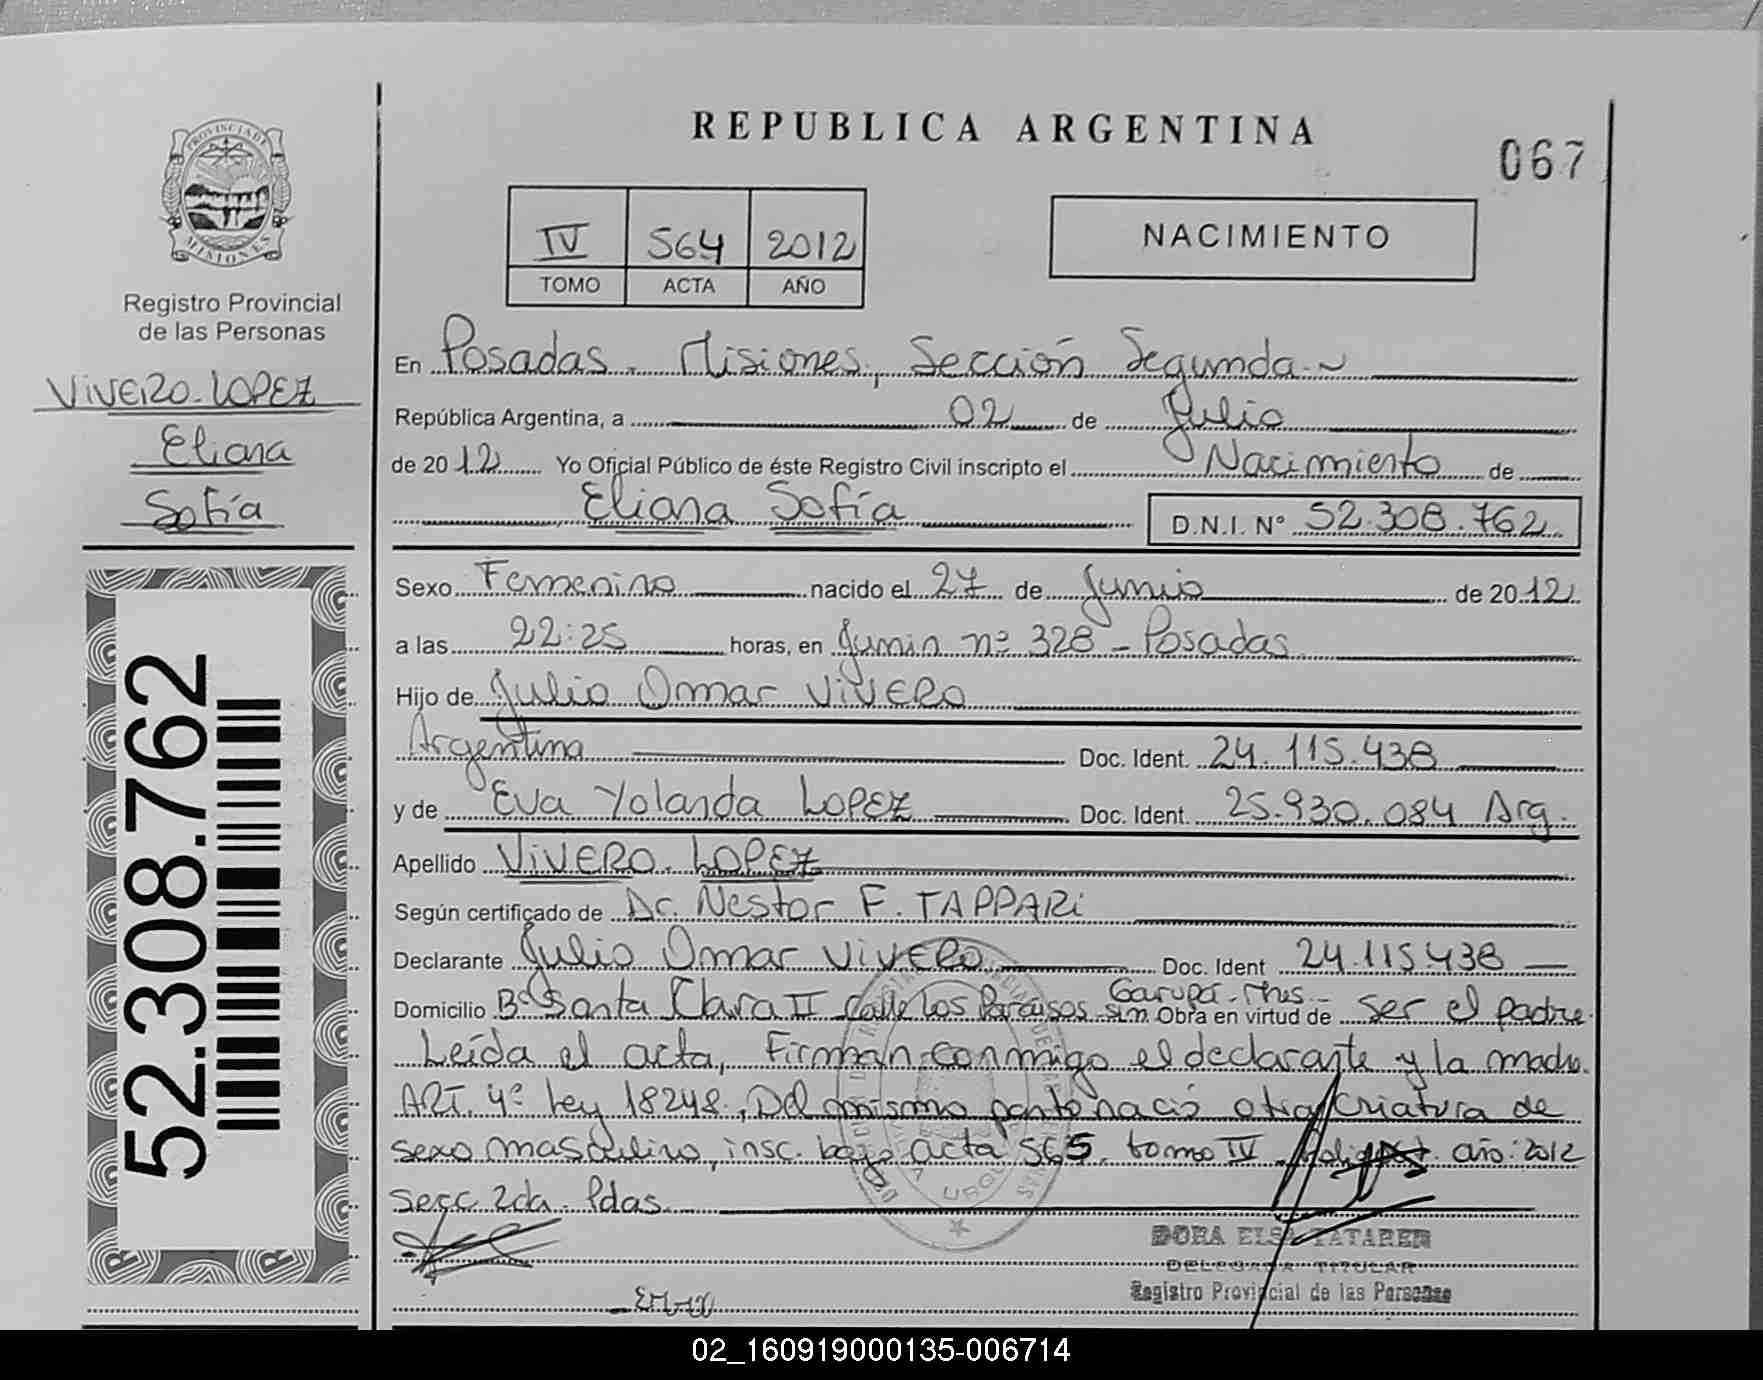 REPUBLICA ARGENTINA
067
PROVINCIA DE
MISIONES
Registro Provincial
de las Personas
VIVERO-LOPEZ
Eliana
Sofía
52.308.762
IV 564 2012
TOMO ACTA AÑO
NACIMIENTO
En Posadas. Misiones, Sección Segunda.~
República Argentina, a 02 de Julio
de 2012 Yo Oficial Público de éste Registro Civil inscripto el Nacimiento de
Eliana Sofía D.N.I. N° 52.308.762
Sexo Femenino nacido el 27 de Junio de 2012
a las 22:25 horas, en Junin nº 328 - Posadas
Hijo de Julio Omar VIVERO
Argentina Doc. Ident. 24.115.438
y de Eva Yolanda LOPEZ Doc. Ident. 25.930.084 Arg.
Apellido VIVERO-LOPEZ
Según certificado de Dr. Nestor F. TAPPARi
Declarante Julio Omar VIVERO Doc. Ident 24.115.438
Domicilio Bº Santa Clara II Calle Los Paraisos s/n Garupá-Mnes- Obra en virtud de ser el padre
Leída el acta, Firman conmigo el declarante y la madre.
ART. 4º Ley 18248. Del mismo parto nació otra criatura de
sexo masculino, insc. bajo acta 565. tomo IV año: 2012
secc 2da. Pdas.
DORA ELSA TATAREN
DELEGADA TITULAR
Registro Provincial de las Personas
02_160919000135-006714